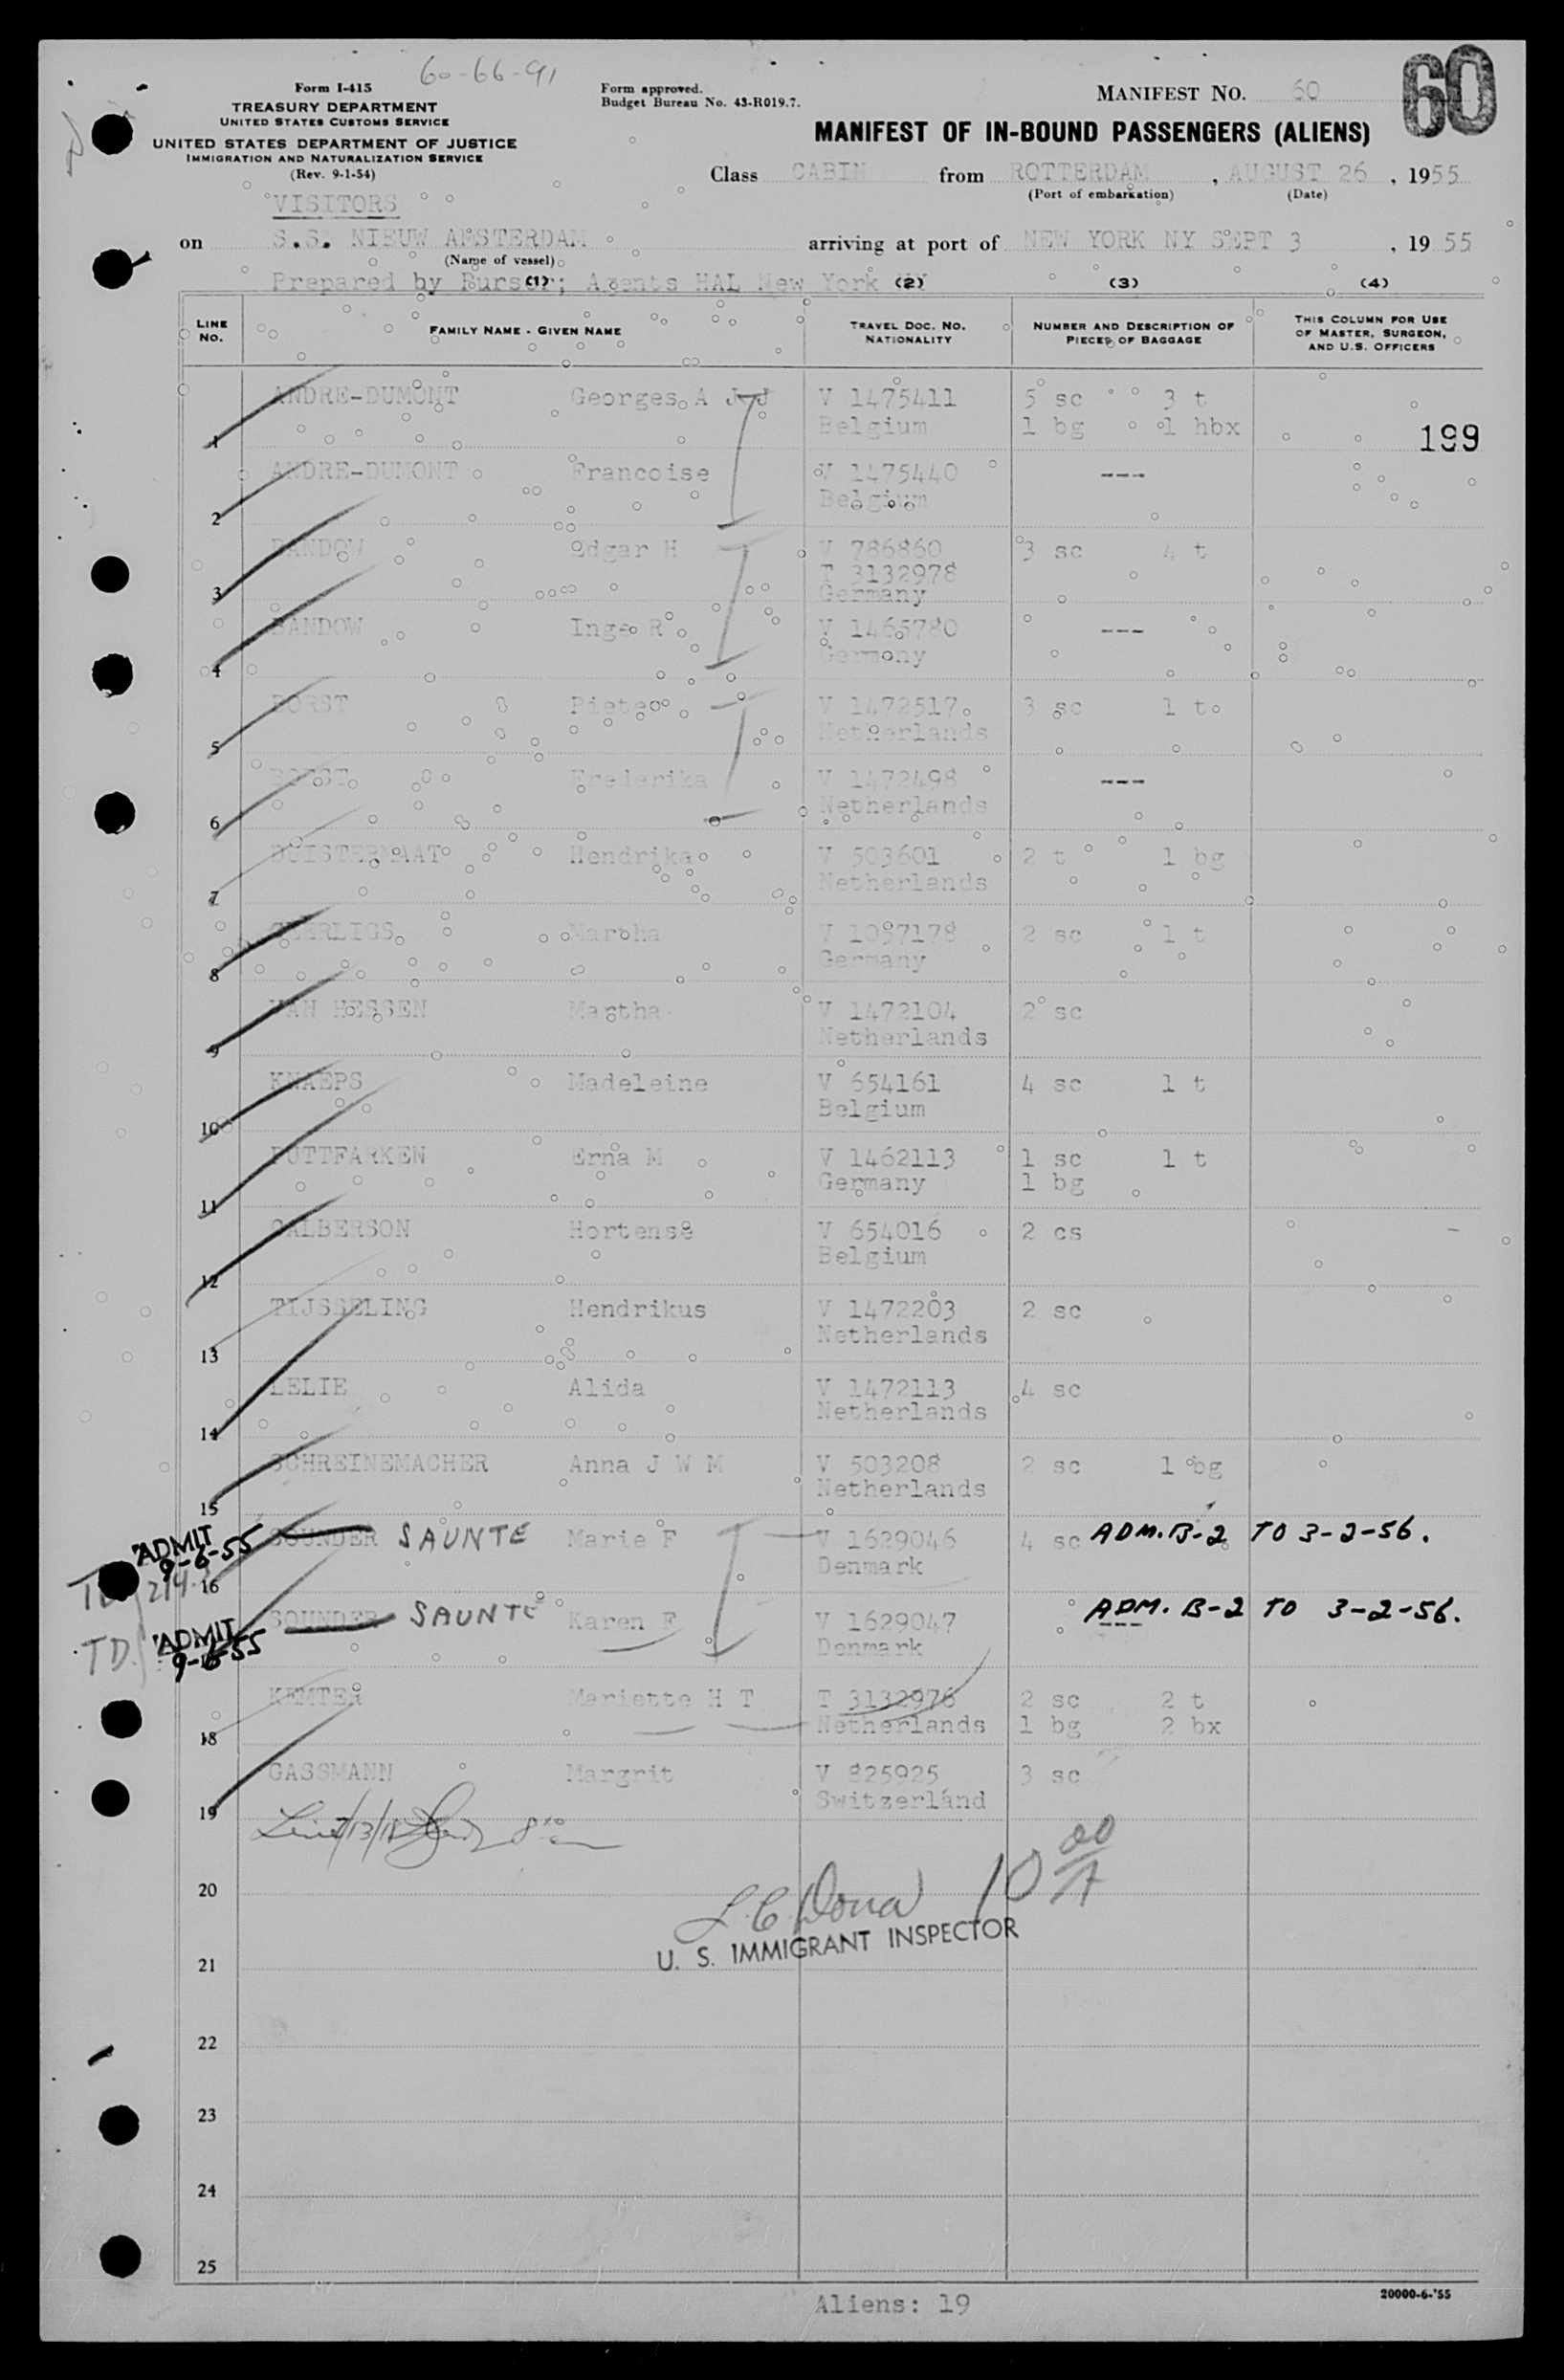 60-66-91
60
Form I-415
TREASURY DEPARTMENT
UNITED STATES CUSTOMS SERVICE
UNITED STATES DEPARTMENT OF JUSTICE
IMMIGRATION AND NATURALIZATION SERVICE
(Rev. 9-1-54)
Form approved.
Budget Bureau No. 43-R019.7.
MANIFEST NO. 60
MANIFEST OF IN-BOUND PASSENGERS (ALIENS)
Class CABIN from ROTTERDAM, AUGUST 26, 1955
(Port of embarkation) (Date)
VISITORS
on S.S. NIEUW AMSTERDAM arriving at port of NEW YORK NY SEPT 3, 1955
(Name of vessel)
Prepared by Purser; Agents HAL New York NY
(1) (2) (3) (4)
LINE NO. FAMILY NAME - GIVEN NAME TRAVEL DOC. NO. NATIONALITY NUMBER AND DESCRIPTION OF PIECES OF BAGGAGE THIS COLUMN FOR USE OF MASTER, SURGEON, AND U.S. OFFICERS
1 ANDRE-DUMONT Georges A J J V 1475411 5 sc 3 t
Belgium 1 bg 1 hbx 199
2 ANDRE-DUMONT Francoise V 1475440 ---
Belgium
3 BANDOW Edgar H V 786860 3 sc 4 t
T 3132978
Germany
4 BANDOW Inge R V 1465780 ---
Germany
5 BORST Pieter V 1472517 3 sc 1 t
Netherlands
6 BORST Frederika V 1472498 ---
Netherlands
7 BUISTERMAAT Hendrika V 503601 2 t 1 bg
Netherlands
8 GEERLIGS Martha V 1087178 2 sc 1 t
Germany
9 VAN HESSEN Martha V 1472104 2 sc
Netherlands
10 KNAEPS Madeleine V 654161 4 sc 1 t
Belgium
11 POTTFARKEN Erna M V 1462113 1 sc 1 t
Germany 1 bg
12 SALBERSON Hortense V 654016 2 cs
Belgium
13 TIJSSELING Hendrikus V 1472203 2 sc
Netherlands
14 LELIE Alida V 1472113 4 sc
Netherlands
15 SCHREINEMACHER Anna J W M V 503208 2 sc 1 bg
Netherlands
ADMIT 9-6-55
16 SOUNDER SAUNTE Marie F V 1629046 4 sc ADM. B-2 TO 3-2-56.
Denmark
TD ADMIT 9-6-55
SOUNDER SAUNTE Karen F V 1629047 --- ADM. B-2 TO 3-2-56.
Denmark
18 KEMTER Mariette H T T 3132976 2 sc 2 t
Netherlands 1 bg 2 bx
19 GASSMANN Margrit V 825925 3 sc
Switzerland
20
10 00/A
U. S. IMMIGRANT INSPECTOR
21
22
23
24
25
Aliens: 19
20000-6-'55